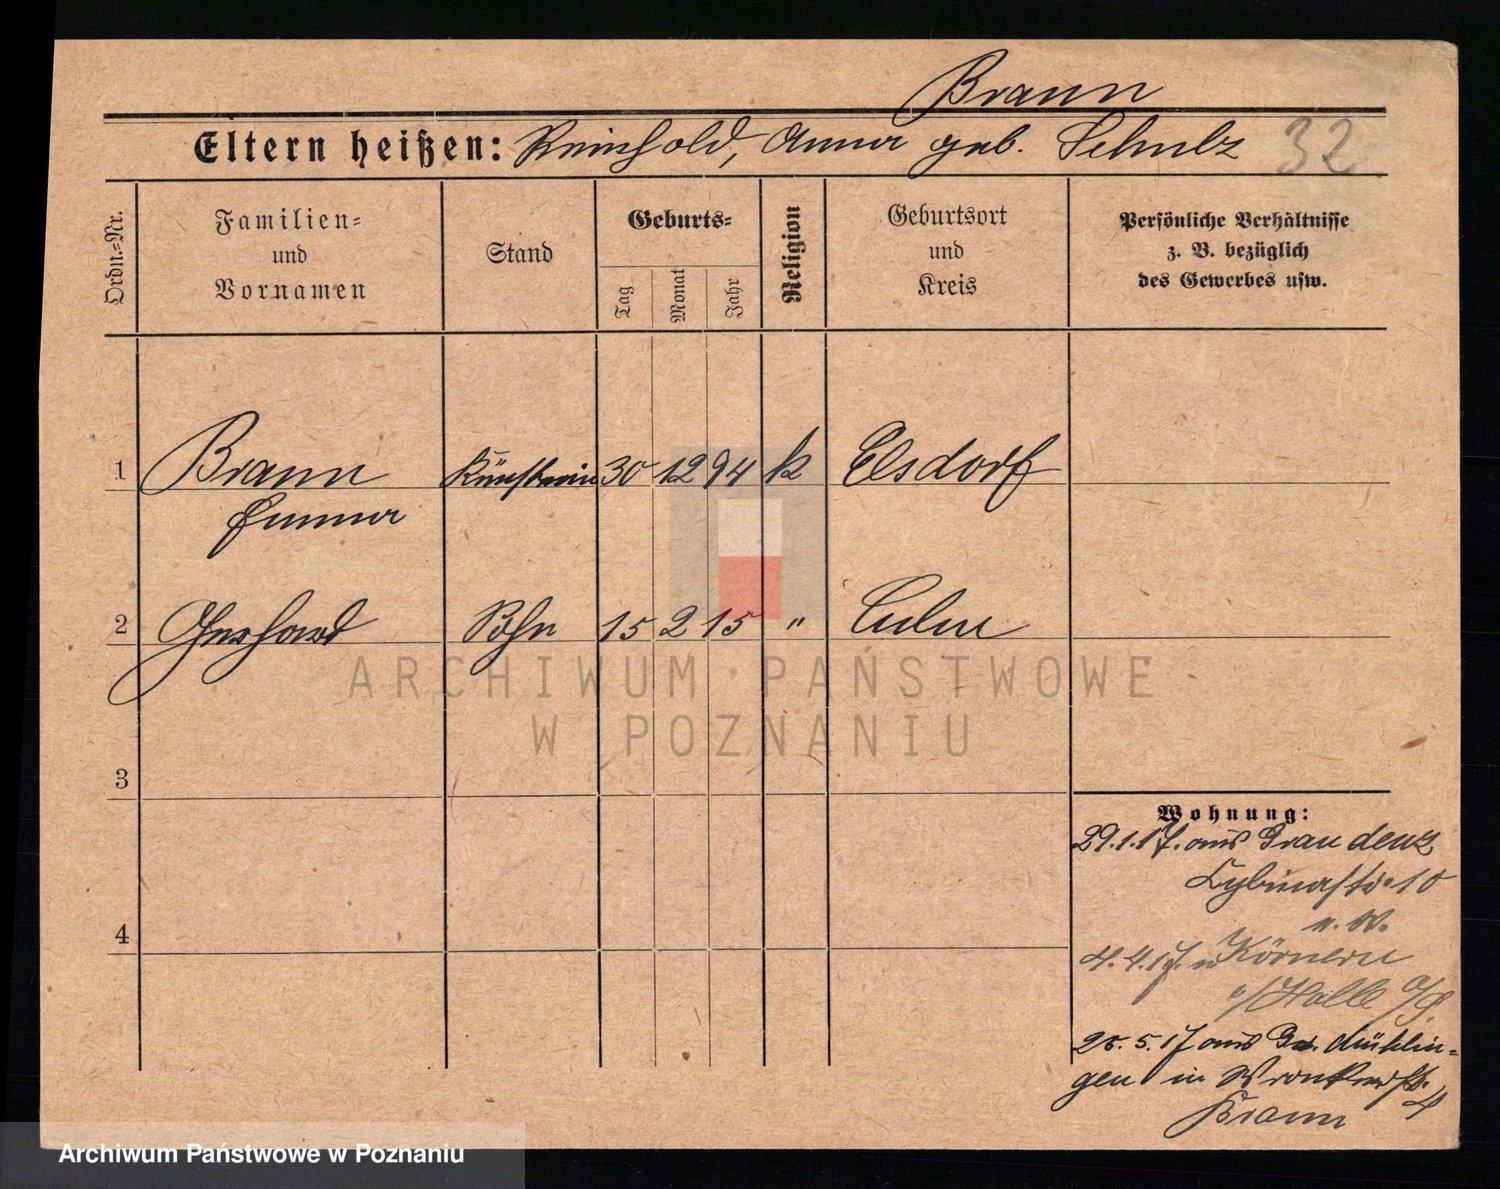 Braun
Eltern heißen: Reinhold, Anna geb. Schulz 32
Ordn.-Nr.
Familien-
und
Vornamen
Stand
Geburts-
Tag
Monat
Jahr
Religion
Geburtsort
und
Kreis
Persönliche Verhältnisse
z. B. bezüglich
des Gewerbes usw.
1 Braun Künstlerin 30 12 94 k Elsdorf
Emma
2 Gerhard Sohn 15 2 15 " Culm
3
4
Wohnung:
29.1.17. aus Graudenz
Lybinastr. 10
b. W.
4.4.17. n Körnern
b/Halle a/S.
25.5.17 aus Gr. Mühlin-
gen in Wronkerstr. 4
Braun
ARCHIWUM PAŃSTWOWE
W POZNANIU
Archiwum Państwowe w Poznaniu